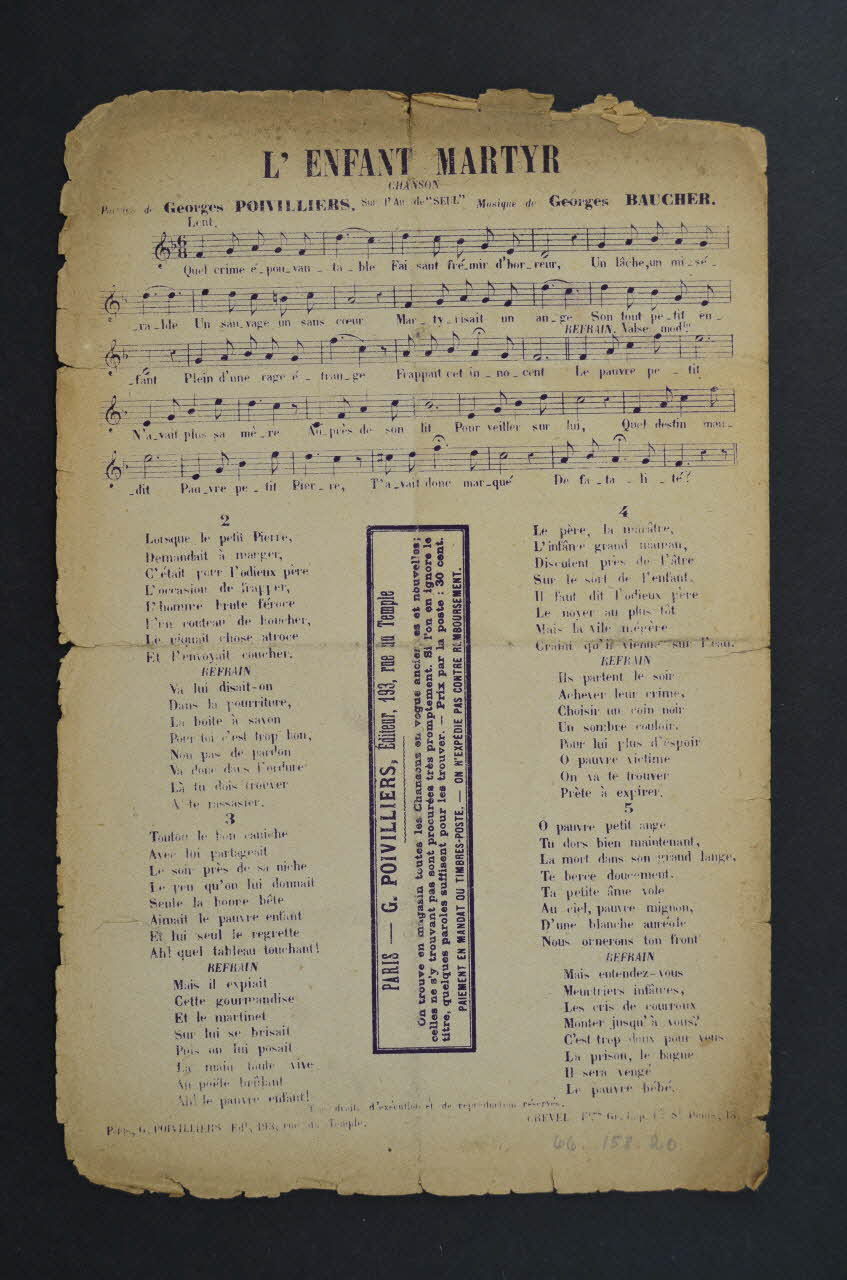 L' ENFANT MARTYR
CHANSON
Paroles de Georges POIVILLIERS. Sur l'Air de "SEUL" Musique de Georges BAUCHER.
Lent.
Quel crime é_pou_van_ta_ble Fai sant fré_mir d'hor_reur, Un lâche,un mi_sé_
_ra_ble Un sau_vage un sans cœur Mar_ty_risait un an_ge Son tout pe_tit en_
REFRAIN. Valse modto
_fant Plein d'une rage é_tran_ge Frappait cet in_no_cent Le pauvre pe_tit
N'a_vait plus sa mè_re Au_près de son lit Pour veiller sur lui, Quel destin mau_
_dit Pau_vre pe_tit Pier_re, T'a_vait donc mar_qué De fa_ta_li_té?
2
Lorsque le petit Pierre,
Demandait à manger,
C'était pour l'odieux père
L'occasion de frapper,
L'homme brute féroce
D'un couteau de boucher,
Le piquait chose atroce
Et l'envoyait coucher.
REFRAIN
Va lui disait-on
Dans la pourriture,
La boîte à savon
Pour toi c'est trop bon,
Non pas de pardon
Va donc dans l'ordure
Là tu dois trouver
A te rassasier.
3
Toutou le bon caniche
Avec lui partageait
Le soir près de sa niche
Le peu qu'on lui donnait
Seule la bonne bête
Aimait le pauvre enfant
Et lui seul le regrette
Ah! quel tableau touchant!
REFRAIN
Mais il expiait
Cette gourmandise
Et le martinet
Sur lui se brisait
Puis on lui posait
La main toute vive
Au poële brûlant
Ah! le pauvre enfant!
PARIS — G. POIVILLIERS, Éditeur, 193, rue du Temple
On trouve en magasin toutes les Chansons en vogue anciennes et nouvelles;
celles ne s'y trouvant pas sont procurées très promptement. Si l'on en ignore le
titre, quelques paroles suffisent pour les trouver. — Prix par la poste : 30 cent.
PAIEMENT EN MANDAT OU TIMBRES-POSTE. — ON N'EXPÉDIE PAS CONTRE REMBOURSEMENT.
4
Le père, la marâtre,
L'infâme grand maman,
Discutent près de l'âtre
Sur le sort de l'enfant.
Il faut dit l'odieux père
Le noyer au plus tôt
Mais la vile mégère
Craint qu'il vienne sur l'eau.
REFRAIN
Ils partent le soir
Achever leur crime,
Choisir un coin noir
Un sombre couloir.
Pour lui plus d'espoir
O pauvre victime
On va te trouver
Prête à expirer.
5
O pauvre petit ange
Tu dors bien maintenant,
La mort dans son grand lange,
Te berce doucement.
Ta petite âme vole
Au ciel, pauvre mignon,
D'une blanche auréole
Nous ornerons ton front
REFRAIN
Mais entendez-vous
Meurtriers infâmes,
Les cris de courroux
Monter jusqu'à vous?
C'est trop doux pour vous
La prison, le bagne
Il sera vengé
Le pauvre bébé.
Tous droits d'exécution et de reproduction réservés.
Paris, G. POIVILLIERS Edr, 193, rue du Temple.
CREVEL Fres Gr. Imp. Fg St Denis, 18.
66. 158. 20